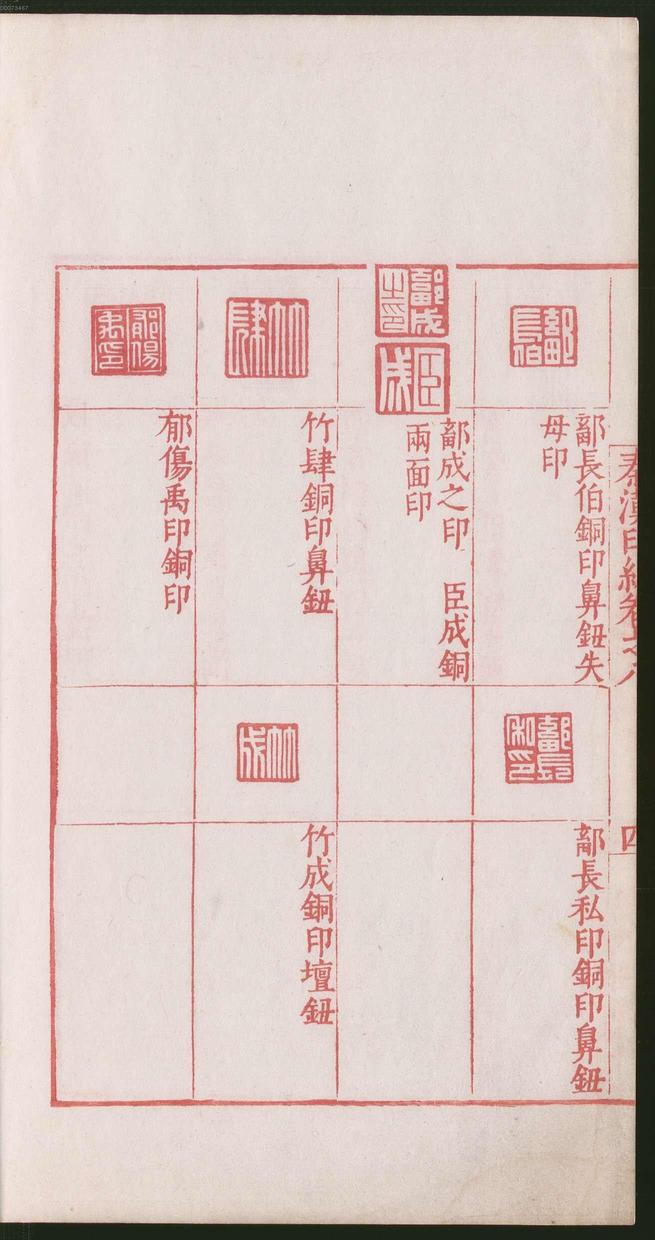 00073467
秦漢印統卷之八
四
鄐長伯銅印鼻鈕失
母印
鄐長私印銅印鼻鈕
鄐成之印 臣成銅
兩面印
竹肆銅印鼻鈕
竹成銅印壇鈕
郁傷禹印銅印